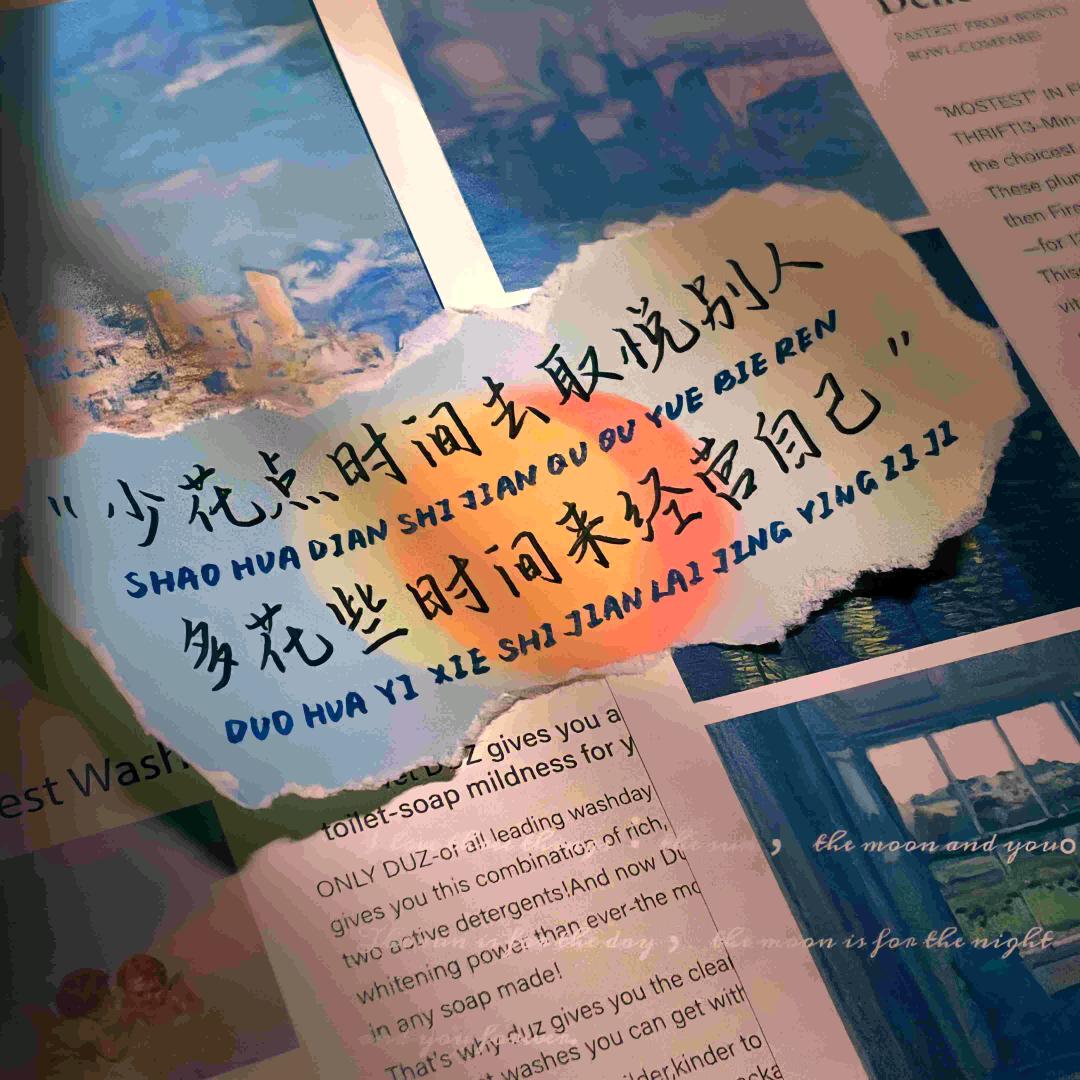 Delic
FASTEST FROM BOX TO
BOWL-COMPARE!
"MOSTEST" IN
THRIFT!3-Min-
the choicest
These
then
—for
This
“少花点时间去取悦别人
SHAO HUA DIAN SHI JIAN QU QU YUE BIE REN
多花些时间来经营自己”
DUO HUA YI XIE SHI JIAN LAI JING YING ZI JI
est Wash
DUZ gives you a
toilet-soap mildness for y
ONLY DUZ-of all leading washday
gives you this combination of rich,
two active detergents!And now Du
whitening power than ever-the mo
in any soap made!
That's why duz gives you the clea
washes you can get with
kinder to
the sun, the moon and you。
The sun is for the day, the moon is for the night
and you forever.